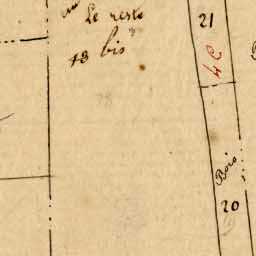 Le reste
43 bis
21
Bois
20